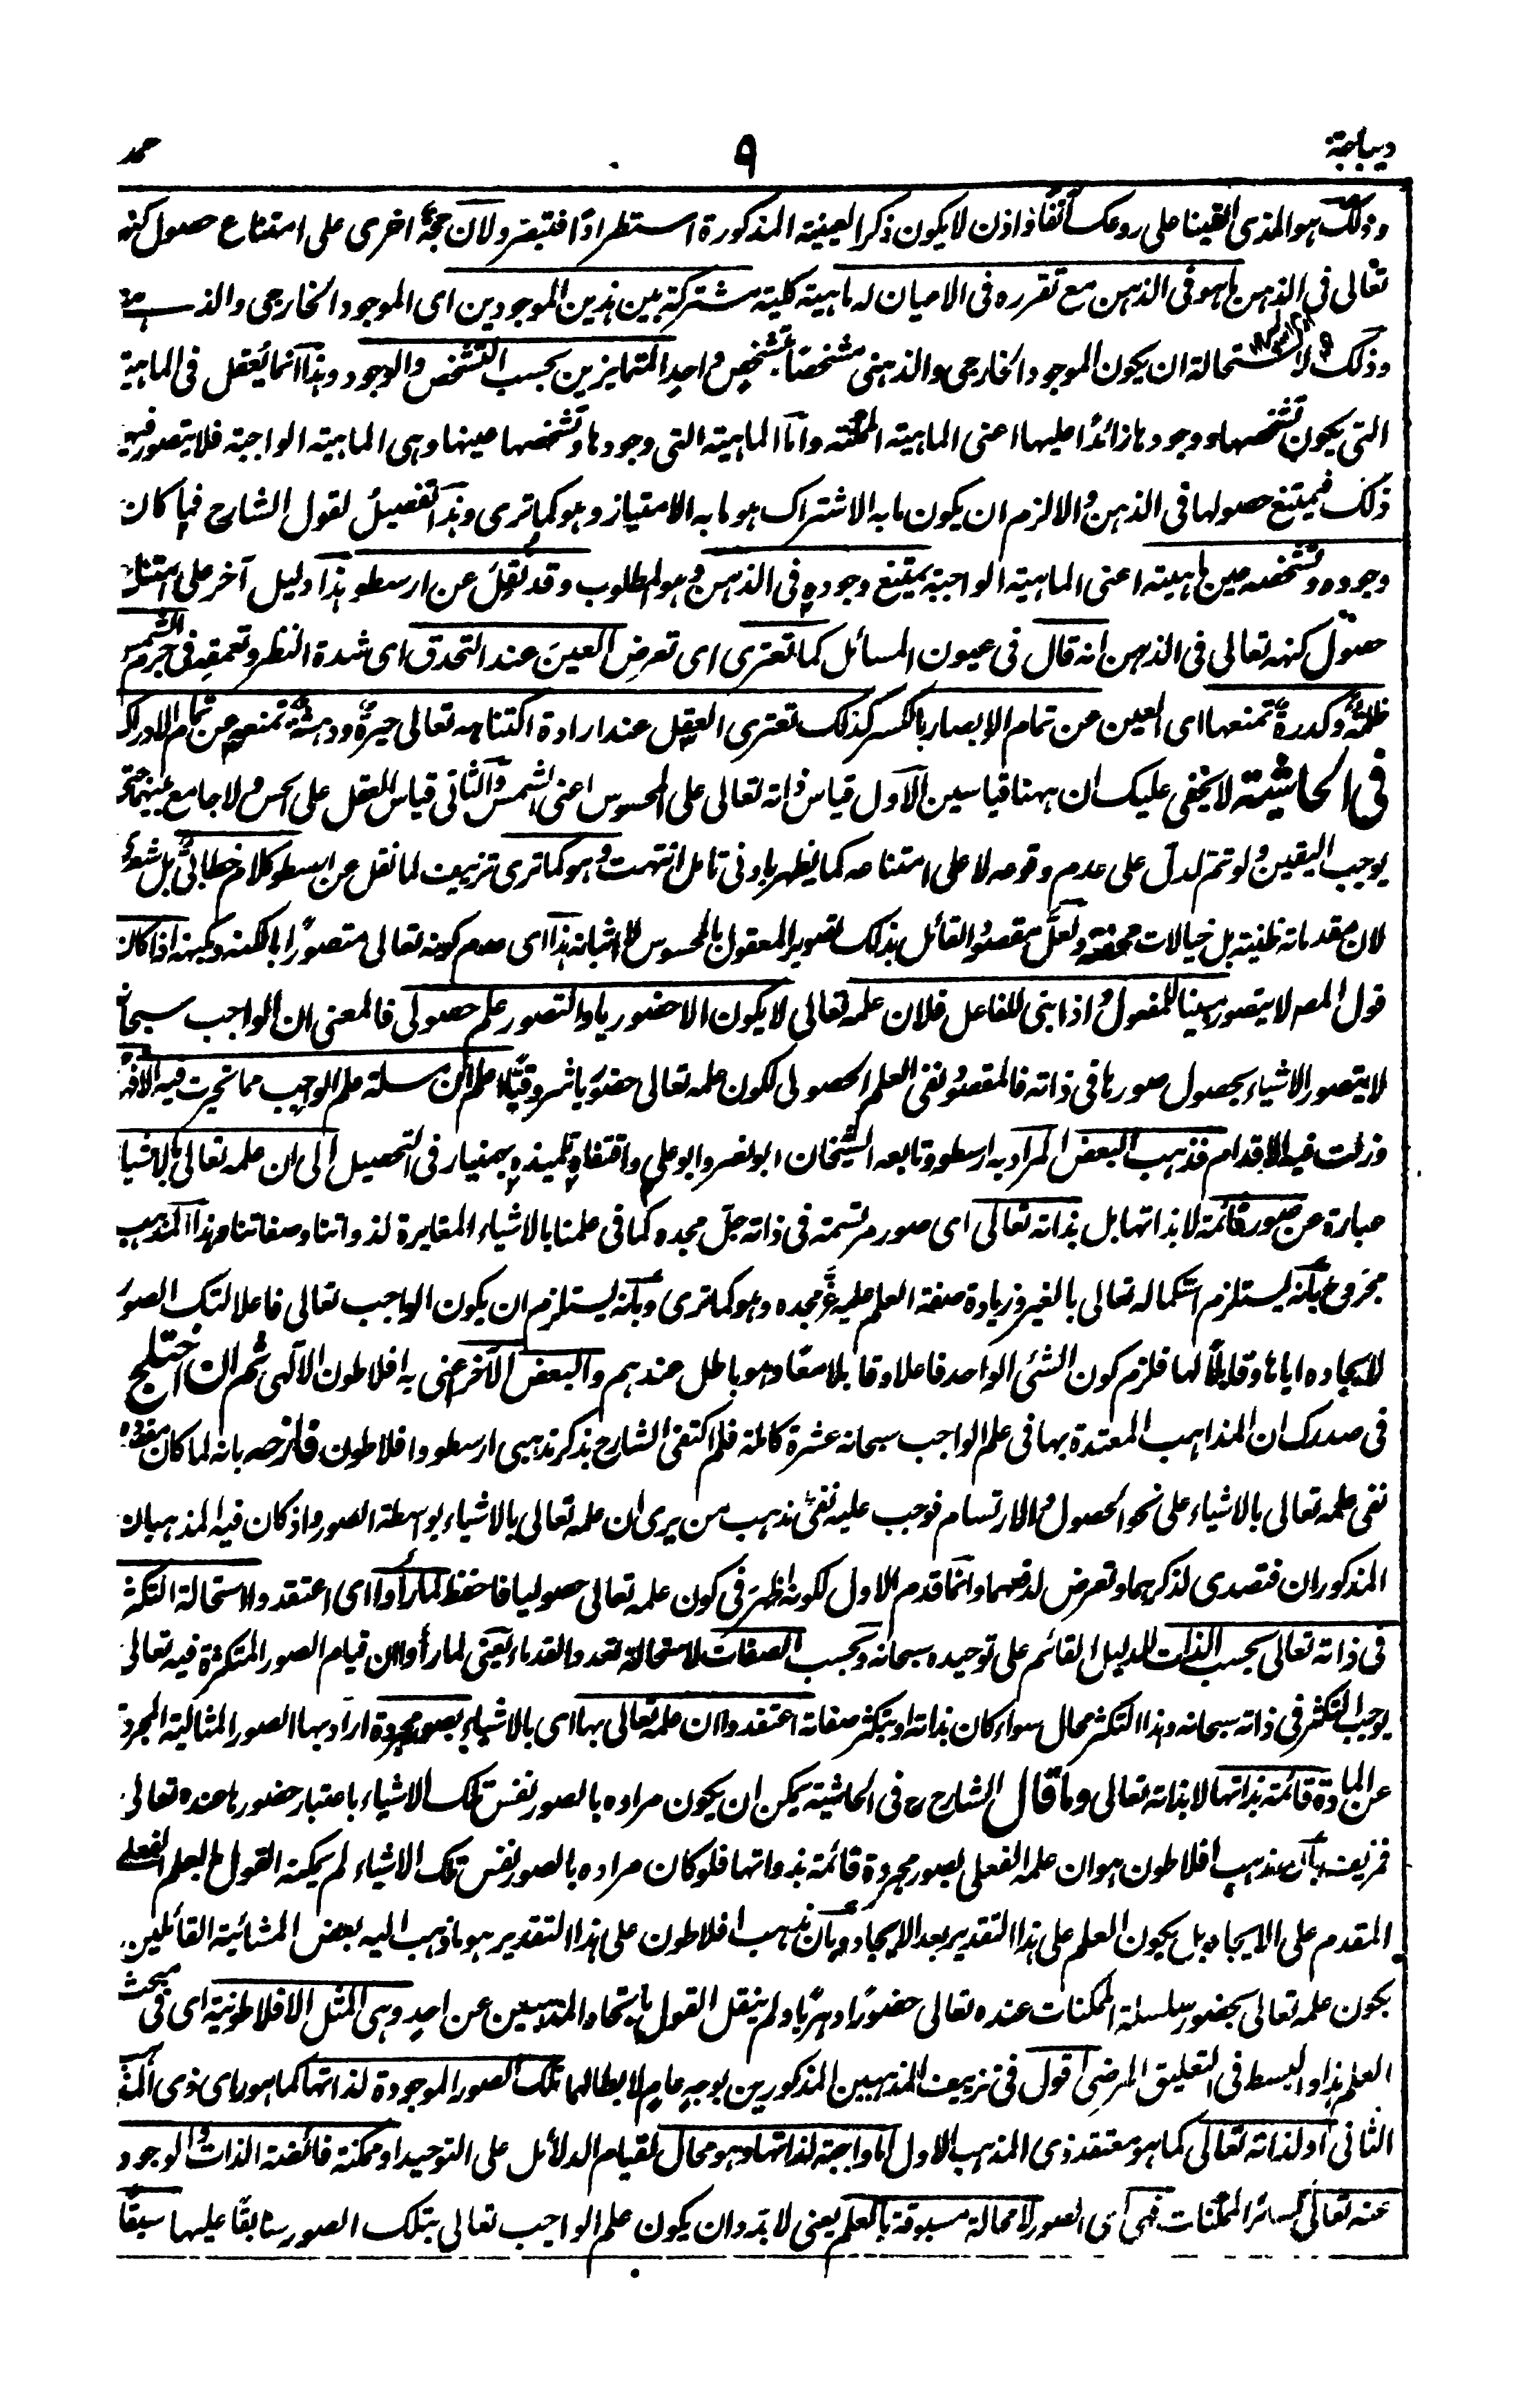 ديباجة ٩ حمد
وذلك هو الذى القينا على روعك آنفا واذن لا يكون ذكر العينية المذكورة استطرادا فتبصر ولان حجة اخرى على امتناع حصول كنه
تعالى فى الذهن ما هو فى الذهن مع تقرره فى الاعيان له ماهية كلية مشتركة بين هذين الموجودين اى الموجود الخارجى والذهنى
وذلك لاستحالة ان يكون الموجود الخارجى والذهنى مشخصا بتشخص واحد المتمايزين بحسب التشخص والوجود وهذا انما يعقل فى الماهية
التى يكون تشخصها ووجودها زائدا عليها اعنى الماهية الممكنة واما الماهية التى وجودها وتشخصها عينها وهى الماهية الواجبة فلا يتصور فيه
ذلك فيمتنع حصولها فى الذهن والا لزم ان يكون ما به الاشتراك هو ما به الامتياز وهو كما ترى وهذا تفصيل لقول الشارح فما كان
وجوده وتشخصه عين ماهيته اعنى الماهية الواجبة يمتنع وجوده فى الذهن وهو المطلوب وقد نقل عن ارسطو هذا دليل آخر على امتناع
حصول كنهه تعالى فى الذهن انه قال فى عيون المسائل كما تعترى اى تعرض العين عند التحدق اى شدة النظر وتعمقه فى جرم الشمس
ظلمة وكدرة تمنعها اى العين عن تمام الابصار بالكسر كذلك تعترى العقل عند ارادة اكتناهه تعالى حيرة ودهشة تمنعه عن تمام الادراك
فى الحاشية لا يخفى عليك ان ههنا قياسين الاول قياس ذاته تعالى على المحسوس اعنى الشمس والثانى قياس العقل على الحس ولا جامع بينهما حتى
يوجب اليقين ولو تم لدل على عدم وقوعه لا على امتناعه كما يظهر بادنى تامل انتهت وهو كما ترى تزييف لما نقل عن ارسطو كلام خطابى بل شعرى
لان مقدماته ظنية بل خيالات محضة ولعل مقصود القائل بذلك تصوير المعقول بالمحسوس لا اثباته هذا اى عدم كونه تعالى متصورا بالكنه وبكنهه اذا كان
قول المصر لا يتصور مبنيا للمفعول اذا بنى للفاعل فلان علمه تعالى لا يكون الا حضوريا والتصور علم حصولى فالمعنى ان الواجب سبحانه
لا يتصور الاشياء بحصول صورها فى ذاته فالمقصود نفى العلم الحصولى لكون علمه تعالى حضوريا شروقيا اعلم ان مسئلة علم الواجب مما تحيرت فيه الافهام
وزلت فيه الاقدام فذهب البعض المراد به ارسطو وتابعه الشيخان ابو نصر وابو على واقتفاه تلميذه بهمنيار فى التحصيل الى ان علمه تعالى بالاشياء
عبارة عن صور قائمة لا بذاتها بل بذاته تعالى اى صور مرتسمة فى ذاته جل مجده كما فى علمنا بالاشياء المغايرة لذواتنا وصفاتنا وهذا المذهب
مجروح بانه يستلزم استكماله تعالى بالغير وزيادة صفة العلم عليه عز مجده وهو كما ترى وبانه يستلزم ان يكون الواجب تعالى فاعلا لتلك الصور
لايجاده اياها وقابلا لها فلزم كون الشئ الواحد فاعلا وقابلا معا وهو باطل عندهم والبعض الآخر عنى به افلاطون الالهى ثم ان اختلج
فى صدرك ان المذاهب المعتدة بها فى علم الواجب سبحانه عشرة كاملة فلم اكتفى الشارح بذكر مذهبى ارسطو وافلاطون فازحه بانه لما كان مقصوده
نفى علمه تعالى بالاشياء على نحو الحصول والارتسام فوجب عليه نفى مذهب من يرى ان علمه تعالى بالاشياء بواسطة الصور واذ كان فيه المذهبان
المذكوران فتصدى لذكرهما وتعرض لدفعهما وانما قدم الاول لكونه اظهر فى كون علمه تعالى حصوليا فاحفظ لما رأوا اى اعتقدوا استحالة التكثر
فى ذاته تعالى بحسب الذات للدليل القائم على توحيده سبحانه وبحسب الصفات لاستحالة تعدد القدماء يعنى لما رأوا ان قيام الصور المتكثرة فيه تعالى
يوجب التكثر فى ذاته سبحانه وهذا التكثر محال سواء كان بذاته او بتكثر صفاته اعتقدوا ان علمه تعالى بها اى بالاشياء بصور مجردة اراد بها الصور المثالية المجردة
عن المادة قائمة بذاتها لا بذاته تعالى وما قال الشارح رح فى الحاشية يمكن ان يكون مراده بالصور نفس تلك الاشياء باعتبار حضورها عنده تعالى
فمزيف بان مذهب افلاطون هو ان علمه الفعلى بصور مجردة قائمة بذواتها فلو كان مراده بالصور نفس تلك الاشياء لم يمكنه القول بالعلم الفعلى
المقدم على الايجاد بل يكون العلم على هذا التقدير بعد الايجاد وبان مذهب افلاطون على هذا التقدير هو ما ذهب اليه بعض المشائية القائلين
بكون علمه تعالى بحضور سلسلة الممكنات عنده تعالى حضورا دهريا ولم ينقل القول باتحاد المذهبين عن احد وهى المثل الافلاطونية اى فى مبحث
العلم هذا والبسط فى التعليق المرضى اقول فى تزييف المذهبين المذكورين بوجه عام لابطالهما تلك الصور الموجودة لذاتها كما هو راى ذى المذهب
الثانى او لذاته تعالى كما هو معتقد ذى المذهب الاول اما واجبة لذاتها وهو محال لقيام الدلائل على التوحيد او ممكنة فائضة الذات والوجود
عنه تعالى كسائر الممكنات فهى اى الصور لا محالة مسبوقة بالعلم يعنى لابد وان يكون علم الواجب تعالى بتلك الصور سابقا عليها سبقا